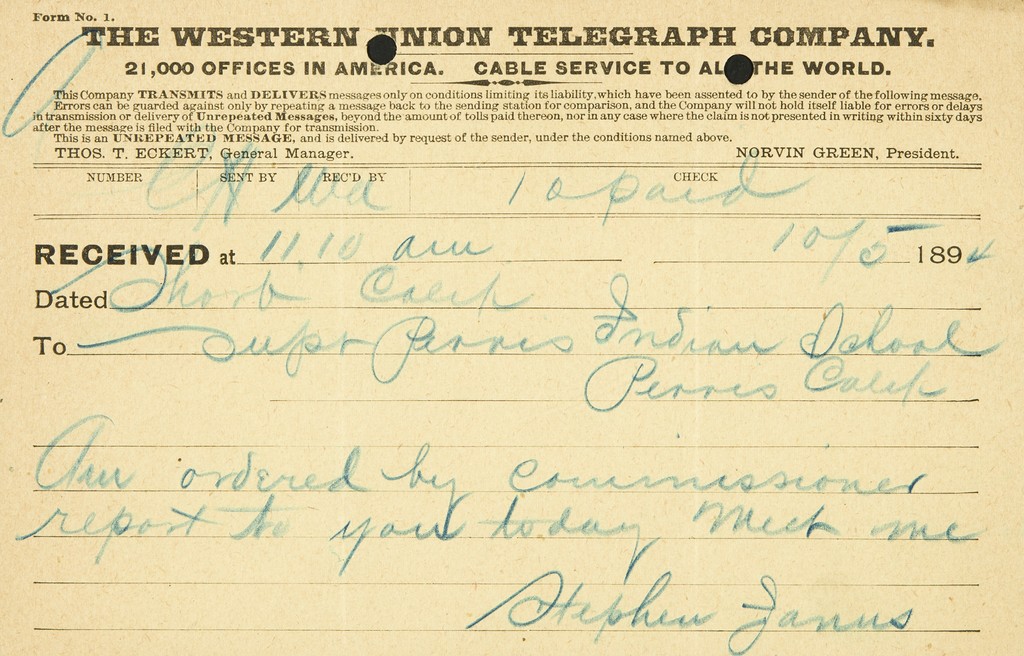 Form No. 1.
THE WESTERN UNION TELEGRAPH COMPANY.
21,000 OFFICES IN AMERICA. CABLE SERVICE TO ALL THE WORLD.
This Company TRANSMITS and DELIVERS messages only on conditions limiting its liability, which have been assented to by the sender of the following message.
Errors can be guarded against only by repeating a message back to the sending station for comparison, and the Company will not hold itself liable for errors or delays
in transmission or delivery of Unrepeated Messages, beyond the amount of tolls paid thereon, nor in any case where the claim is not presented in writing within sixty days
after the message is filed with the Company for transmission.
This is an UNREPEATED MESSAGE, and is delivered by request of the sender, under the conditions named above.
THOS. T. ECKERT, General Manager. NORVIN GREEN, President.
NUMBER SENT BY REC'D BY CHECK
10 paid
RECEIVED at 11.10 am 10/5 1894
Dated Calif
To Supt Perris Indian School
Perris Calif
Am ordered by commissioner
report to you today Meet me
Stephen Janus